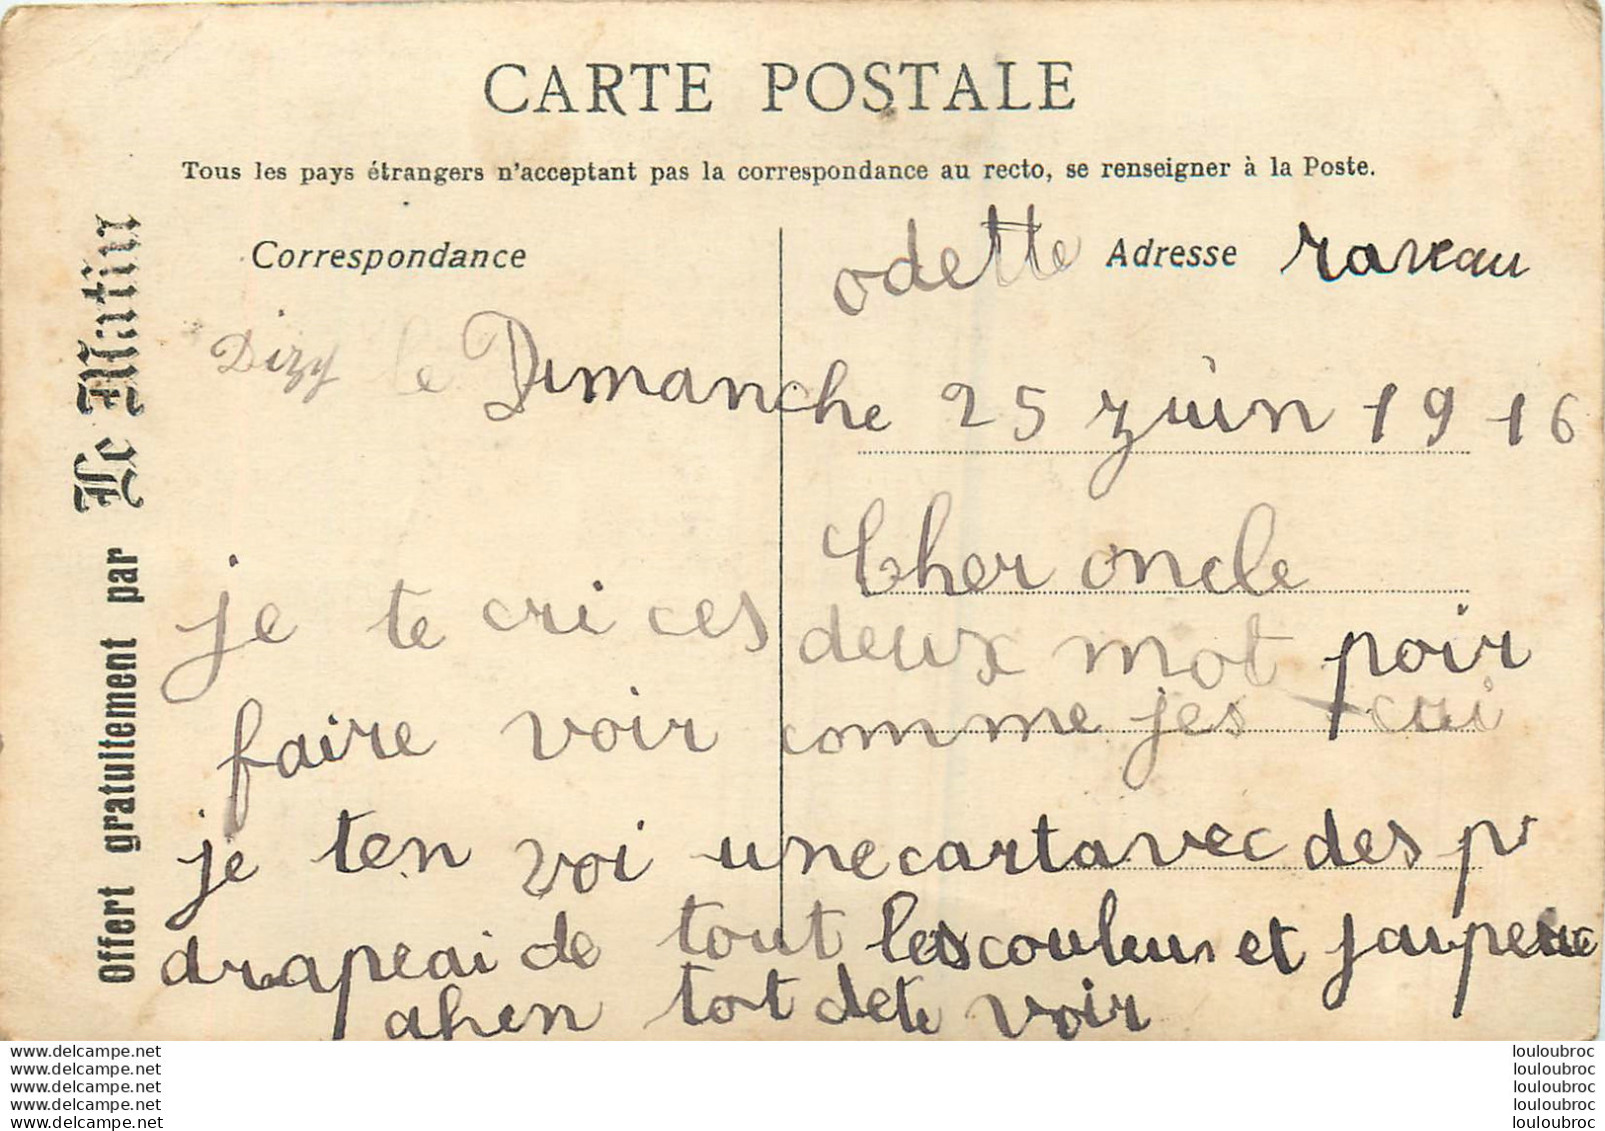 CARTE POSTALE
Tous les pays étrangers n'acceptant pas la correspondance au recto, se renseigner à la Poste.
Offert gratuitement par Le Matin
Correspondance
Adresse
odette raveau
Dizy le Dimanche 25 juin 1916
Cher oncle
je te cri ces deux mot poir
faire voir comme jes cri
je ten voi une cart avec des p
drapeai de tout les couleur et j
ahen tot dete voir
www.delcampe.net
www.delcampe.net
www.delcampe.net
www.delcampe.net
www.delcampe.net
louloubroc
louloubroc
louloubroc
louloubroc
louloubroc